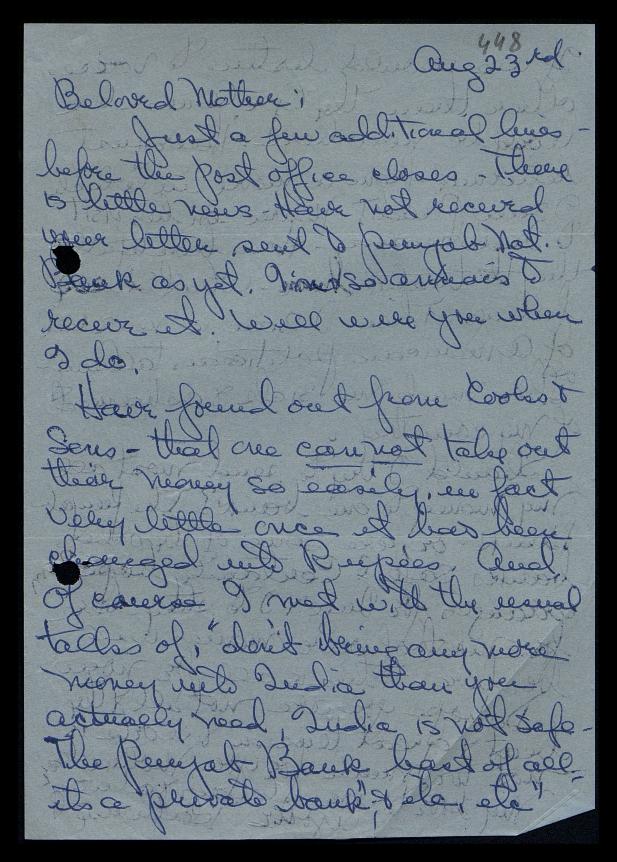 448
Aug 23rd
Beloved Mother;
Just a few additional lines -
before the post office closes - There
is little news - Have not received
your letter sent to Punjab Nat.
Bank as yet. so anxious to
receive it. Will wire you when
I do.
Have found out from Cooks &
Sons - that one cannot take out
their money so easily, in fact
very little once it has been
changed into Rupees. And
of course I met with the usual
talks of, "don't bring any more
money into India than you
actually need, India is not safe -
The Punjab Bank least of all -
its a private bank", & etc, etc"